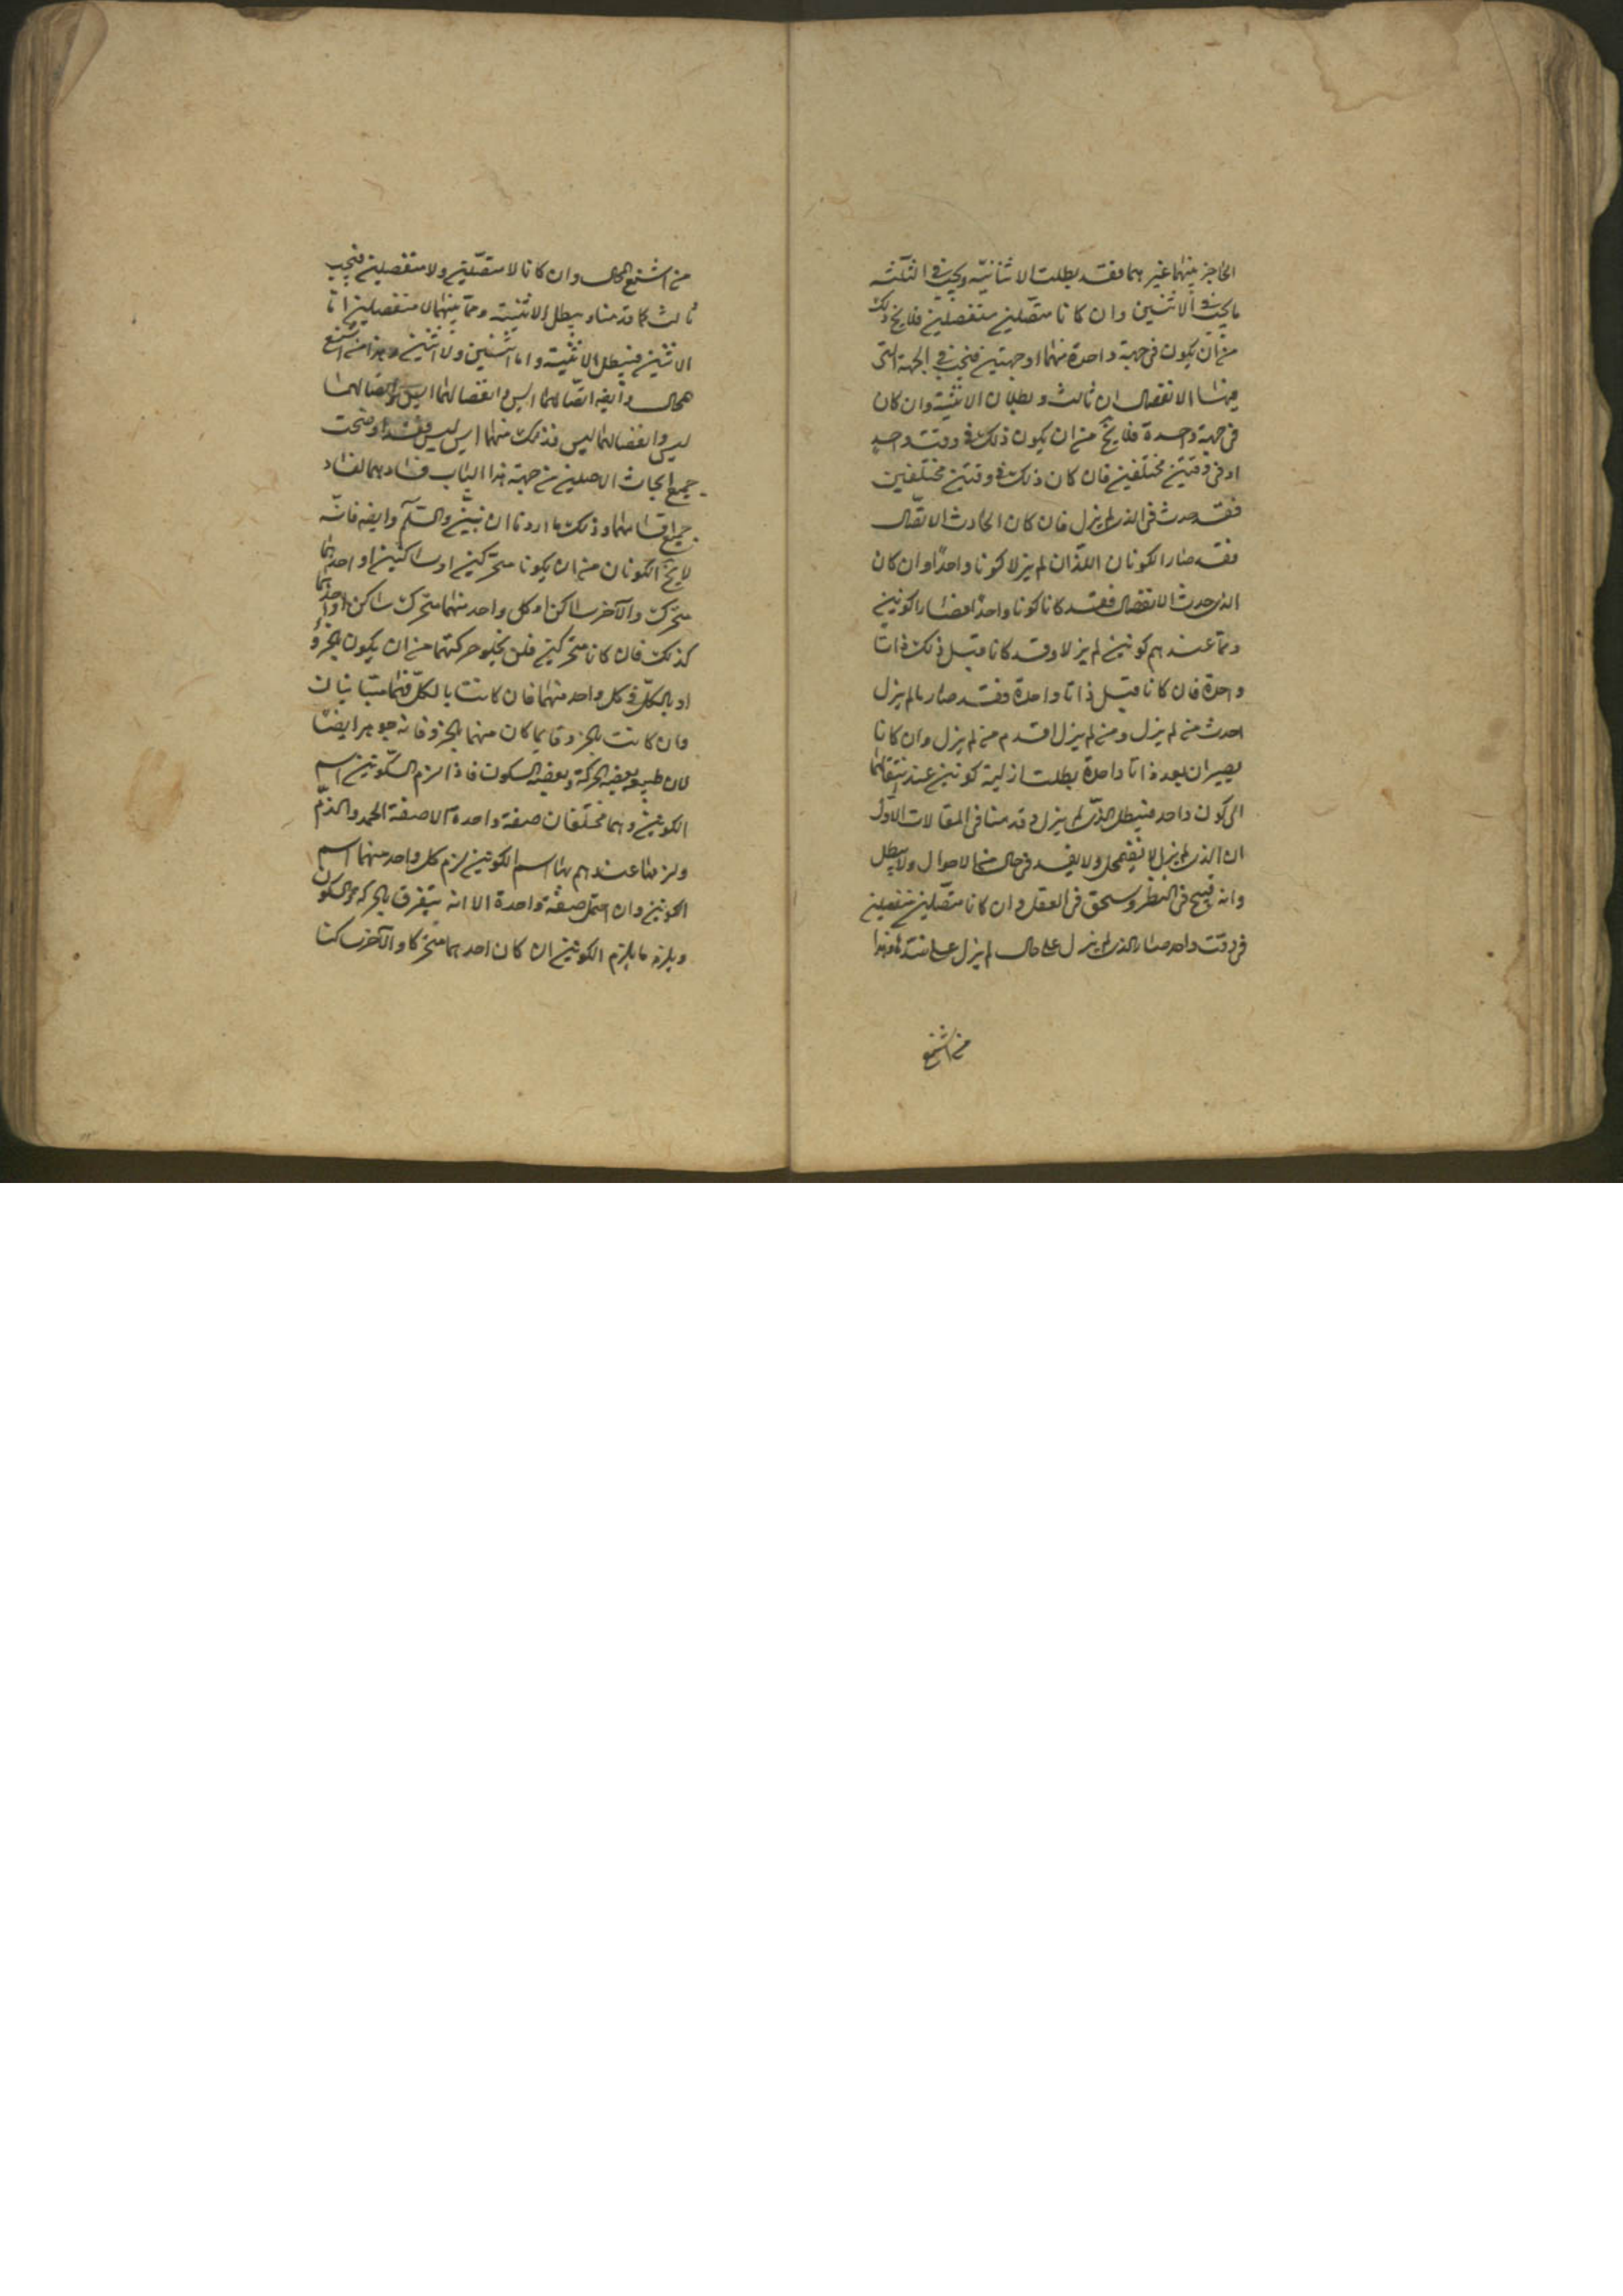 الحاجز بينهما غيرهما فقد بطلت الاثنانية ويجب في الثلثة
ما يجب في الاثنين وان كانا متصلين منفصلين فلا يخ ذلك
من ان يكون في جهة واحدة منهما او جهتين فيجب في الجهة التي
فيها الانفصال ان ثالث وبطلان الاثنية وان كان
في جهة واحدة فلا يخ من ان يكون ذلك في وقت واحد
او في وقتين مختلفين فان كان ذلك في وقتين مختلفين
فقد حدث في الذي لم يزل فان كان الحادث الاتصال
فقد صار الكونان اللذان لم يزلا كونا واحدا وان كان
الذي حدث الانفصال فقد كانا كونا واحدا فصارا كونين
وهما عندهم كونين لم يزلا وقد كانا قبل ذلك ذاتا
واحدة فان كانا قبل ذاتا واحدة فقد صار ما لم يزل
احدث من لم يزل ومن لم يزل اقدم من لم يزل وان كانا
يصيران بعد ذاتا واحدة بطلت ازلية كونين عند انتقالهما
الى كون واحد فيبطل الذي لم يزل وقد قدمنا في المقالات الاول
ان الذي لم يزل لا يضمحل ولا يفسد في حال من الاحوال ولا يبطل
وانه قبيح في النظر وسحق في العقل وان كانا متصلين منفصلين
في وقت واحد صار الذي لم يزل على حال لم يزل على ضدها وهذا
من اشنع
من اشنع المحال وان كانا لا متصلين ولا منفصلين فيجب
ثالث كما قدمنا ويبطل الاثنية وهما بينهما لا منفصلين اتا
الاثنين فيبطل الاثنية واما اثنين ولا اثنين وهذا من اشنع
محال وايضا اتصالهما ايس وانفصالهما ايس واتصالهما
ليس وانفصالهما ليس فذلك منهما ايس ليس فقد اوضحت
جميع ابحاث الاصلين من جهة هذا الباب فسادهما لفساد
جميع اقسامهما وذلك ما اردنا ان نبين والسلم وايضا فانه
لا يخ الكونان من ان يكونا متحركين او ساكنين او احدهما
متحرك والآخر ساكن او كل واحد منهما متحرك ساكن او احدهما
كذلك فان كانا متحركين فلن يخلو حركتهما من ان يكون بالجزو
او بالكل في كل واحد منهما فان كانت بالكل فهما متباينان
وان كانت بالجزو فايما كان منهما بالجزو فانه جوهر ايضا
لان طبيعة بعضه الحركة وبعضه السكون فاذا لزم السكونين اسم
الكونين وهما مختلفان صفة واحدة الا صفة الحمد والذم
ولزمها عندهم بها اسم الكونين لزم كل واحد منهما اسم
الكونين وان احتمل صفة واحدة الا انه يتفرق بالحركة والسكون
ويلزمه ما يلزم الكونين ان كان احدهما متحركا والآخر ساكنا